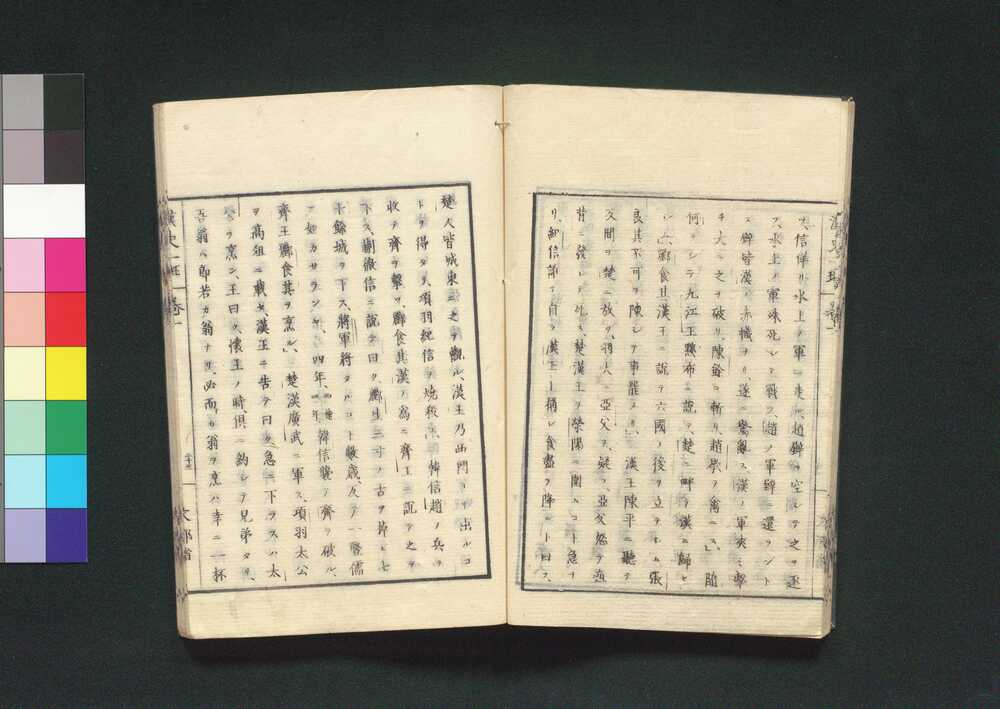 ス、信佯リ水上ノ軍ニ走ル、趙壁ヲ空シテ之ヲ逐
フ、水上ノ軍殊死シテ戰フ、趙ノ軍壁ニ還ラント
ス、壁皆漢ノ赤幟ヲリ、遂ニ驚亂ス、漢ノ軍夾ミ擊
テ大ニ之ヲ破リ、陳餘ヲ斬リ趙歇ヲ禽ニス、隨
何ヲシテ九江王黥布ニ説テ、楚ニ畔テ漢ニ歸セ
シム、酈食其漢王ニ説テ六國ノ後ヲ立テシム、張
良其不可ヲ陳シテ事罷ム、漢王陳平ニ聽テ
間ヲ楚ニ放ツ、羽大ニ亞父ヲ疑フ、亞父怒テ疽
背ニ發シテ死ス、楚漢王ヲ滎陽ニ圍ムコト急ナ
リ、紀信詐テ自ラ漢王ト稱シ食盡テ降ルト曰フ、
漢史一班 卷一
楚人皆城東ニ之ヲ觀ル、漢王乃西門ヨリ出ルコ
トヲ得タリ、項羽紀信ヲ燒殺ス、韓信趙ノ兵ヲ
收テ齊ヲ擊ツ、酈食其漢ノ爲ニ齊王ニ説テ之ヲ
下ス、蒯徹信ニ説テ曰ク、酈生三寸ノ舌ヲ掉ヒ七
十餘城ヲ下ス、將軍將タルコト數歳、反テ一豎儒
ニ如カサランヤト、四年、韓信襲テ齊ヲ破ル、
齊王酈食其ヲ烹ル、楚漢廣武ニ軍ス、項羽太公
ヲ高俎ニ載セ、漢王ニ告テ曰ク、急ニ下ラスハ太
公ヲ烹ン、王曰ク、懷王ノ時、倶ニ約シテ兄弟タリ、
吾翁ハ即若カ翁ナリ、必而カ翁ヲ烹ハ幸ニ一杯
漢史一班 卷一
文部省